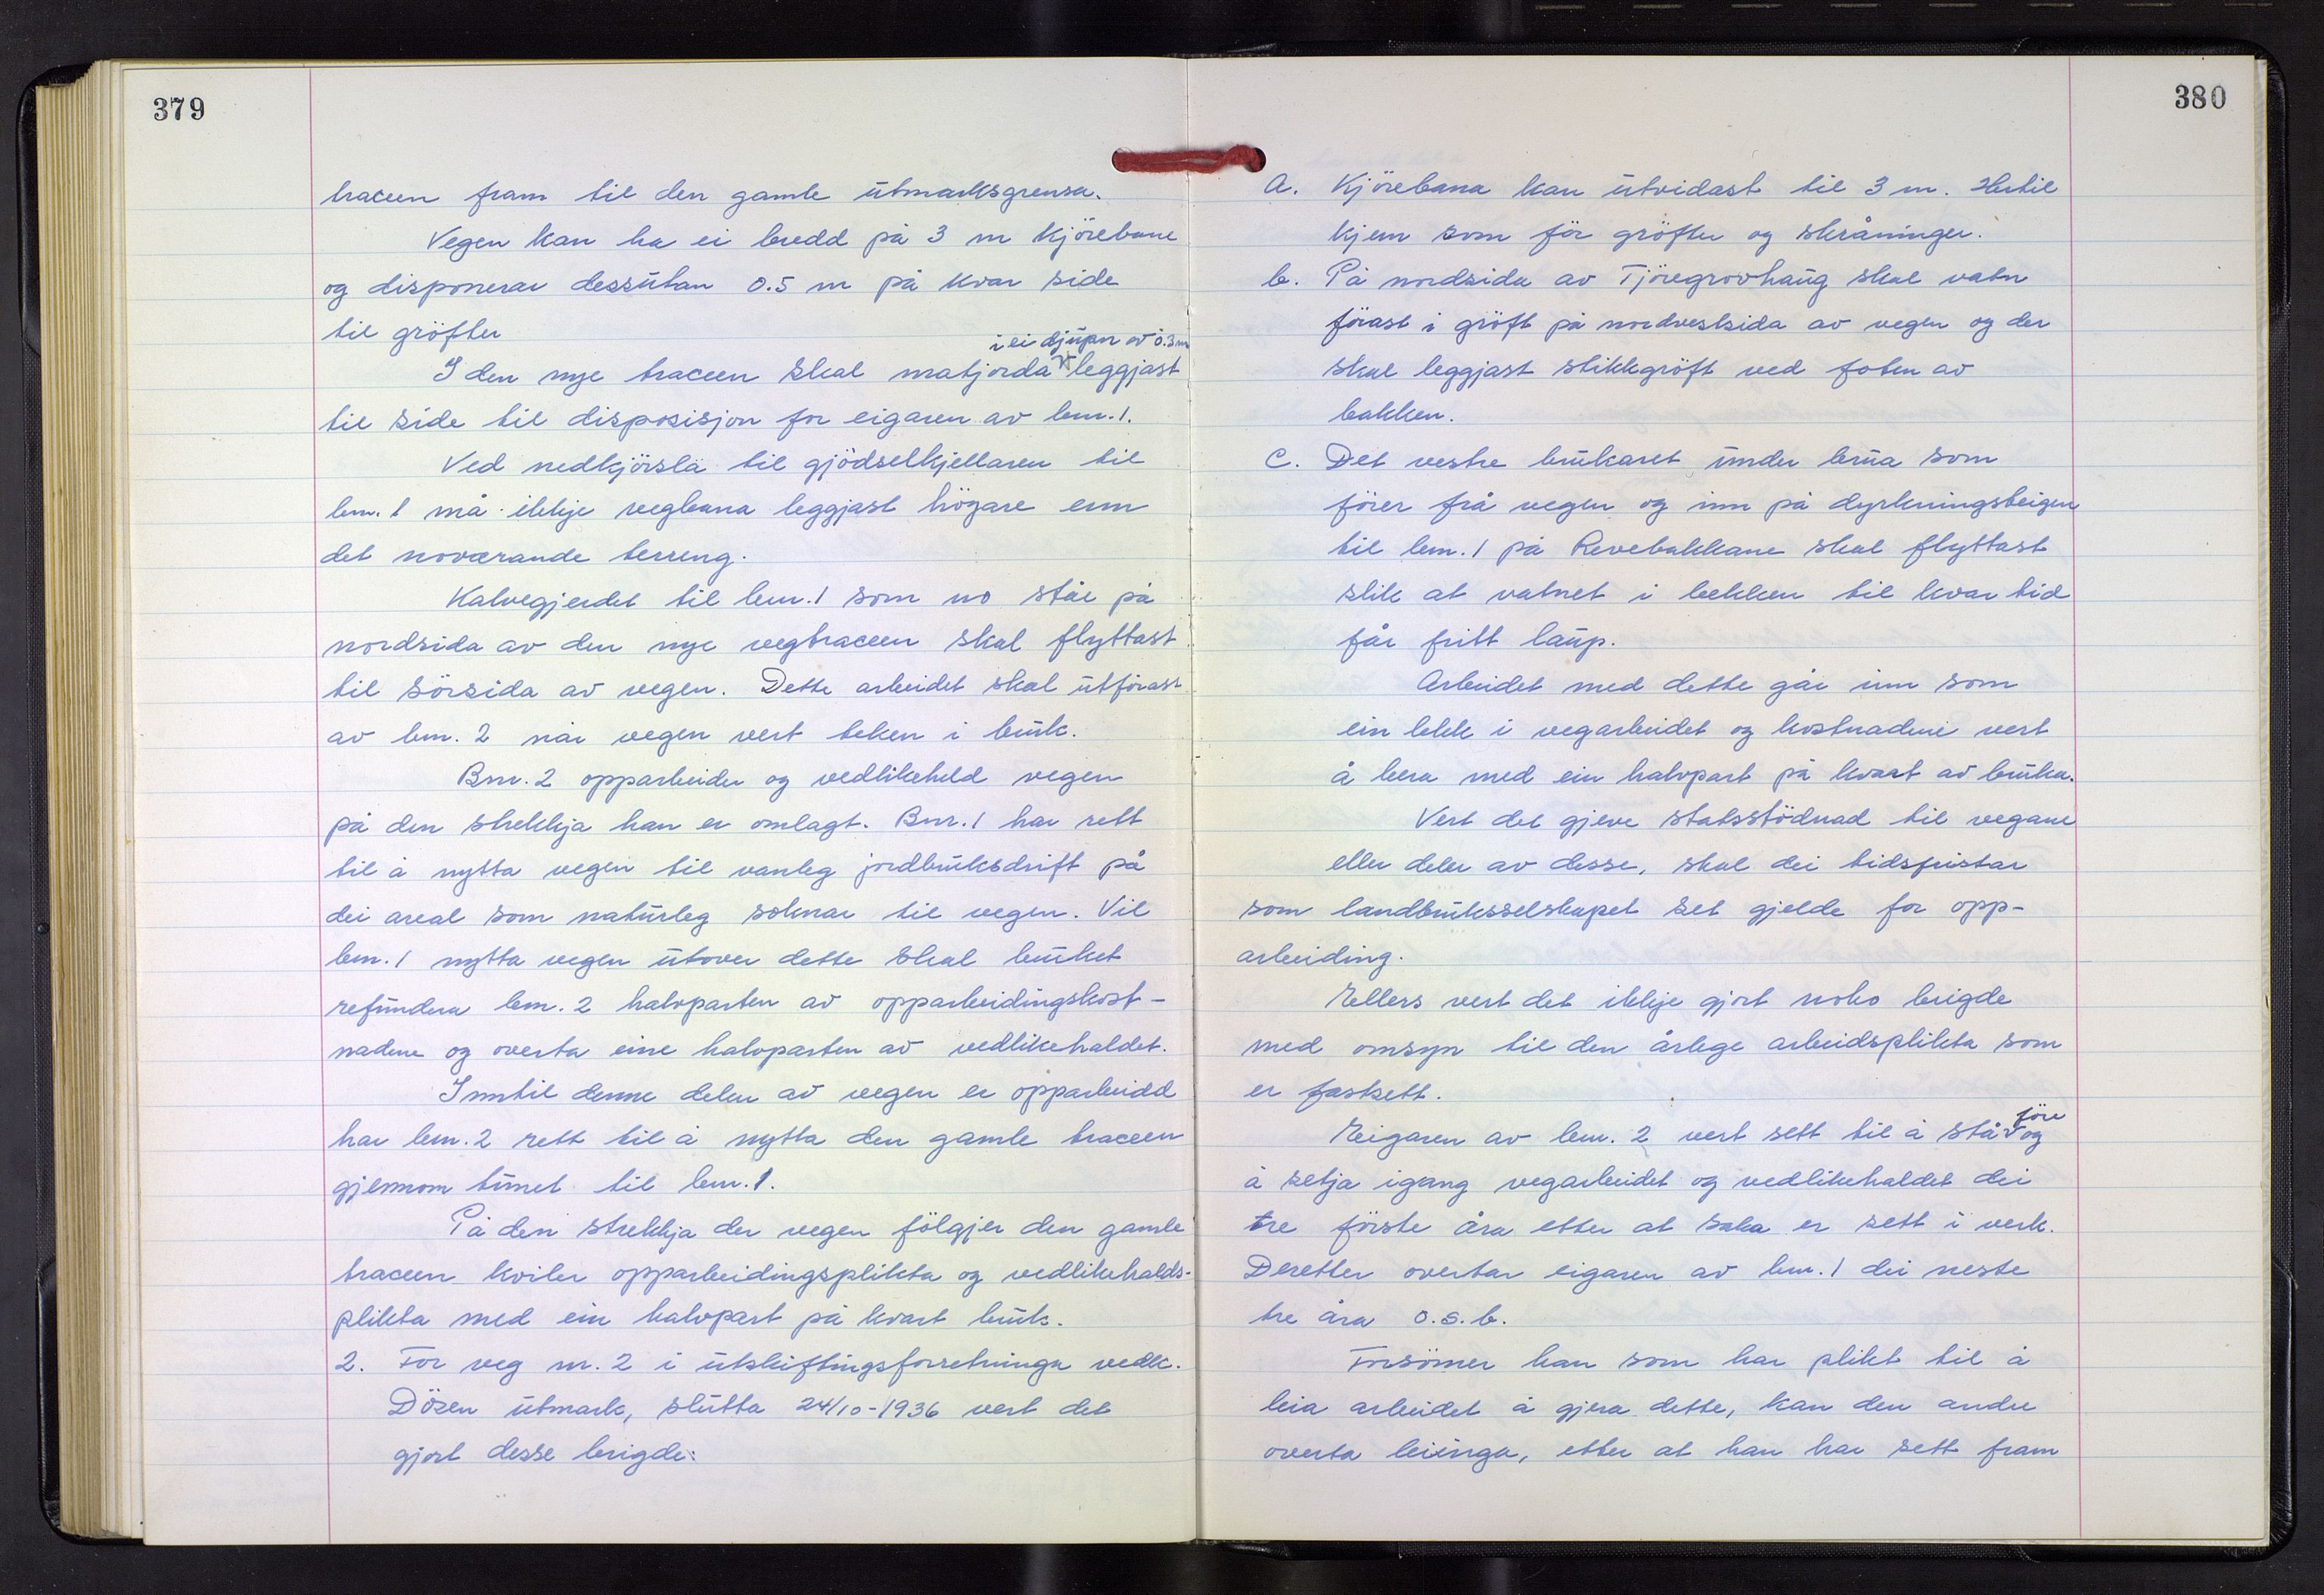 379
traceen fram til den gamle utmarksgrensa.
Vegen kan ha ei bredd på 3 m kjörebane
og disponerar dessutan 0.5 m på kvar side
til gröfter
i ei djupn av 0.3 m
I den nye traceen skal matjorda leggjast
til side til disposisjon for eigaren av bnr. 1.
Ved nedkjörsla til gjödselkjellaren til
bnr. 1 må ikkje vegbana leggjast högare enn
det noverande terreng.
Kalvegjerdet til bnr. 1 som no står på
nordsida av den nye vegtraceen skal flyttast
til sörsida av vegen. Dette arbeidet skal utförast
av bnr. 2 når vegen vert teken i bruk.
Bnr. 2 opparbeider og vedlikeheld vegen
på den strekkja han er omlagt. Bnr. 1 har rett
til å nytta vegen til vanleg jordbruksdrift på
dei areal som naturleg soknar til vegen. Vil
bnr. 1 nytta vegen utover dette skal bruket
refundera bnr. 2 halvparten av opparbeidingskost-
nadene og overta eine halvparten av vedlikehaldet.
Inntil denne delen av vegen er opparbeidd
har bnr. 2 rett til å nytta den gamle traceen
gjennom tunet til bnr. 1.
På den strekkja der vegen fölgjer den gamle
traceen kviler opparbeidingsplikta og vedlikehalds-
plikta med ein halvpart på kvart bruk.
2. For veg nr. 2 i utskiftingsforretninga vedk.
Dösen utmark, slutta 24/10-1936 vert det
gjort desse brigde:
380
a. Kjörebana kan utvidast til 3 m. Hertil
kjem som för gröfter og skråninger.
b. På nordsida av Tjöregrovhaug skal vatn
förast i gröft på nordvestsida av vegen og der
skal leggjast stikkgröft ved foten av
bakken.
c. Det vestre brukaret under brua som
förer frå vegen og inn på dyrkningsteigen
til bnr. 1 på Revebakkane skal flyttast
slik at vatnet i bekken til kvar tid
får fritt laup.
Arbeidet med dette går inn som
ein lekk i vegarbeidet og kostnadene vert
å bera med ein halvpart på kvart av bruka.
Vert det gjeve statsstödnad til vegane
eller deler av desse, skal dei tidsfristar
som landbruksselskapet set gjelde for opp-
arbeiding.
Ellers vert det ikkje gjort noko brigde
med omsyn til den årlege arbeidsplikta som
er fastsett.
före
Eigaren av bnr. 2 vert sett til å stå og
å setja igang vegarbeidet og vedlikehaldet dei
tre förste åra etter at saka er sett i verk.
Deretter overtar eigaren av bnr. 1 dei neste
tre åra o.s.b.
Forsömer han som har plikt til å
leia arbeidet å gjera dette, kan den andre
overta leiinga, etter at han har sett fram